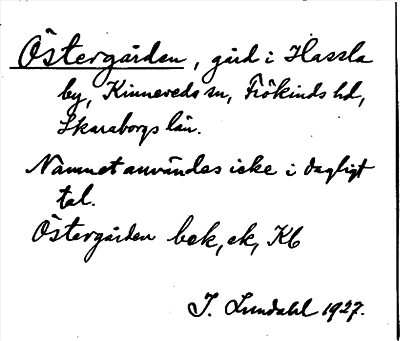 Östergården, gård i Hassla
by, Kinneveds sn, Frökinds hd,
Skaraborgs län.
Namnet användes icke i dagligt
tal.
Östergården bek, ek, Kb
I. Lundahl 1927.